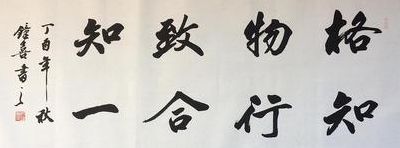 格知
物行
致合
知一
丁酉年秋
钟喜书之